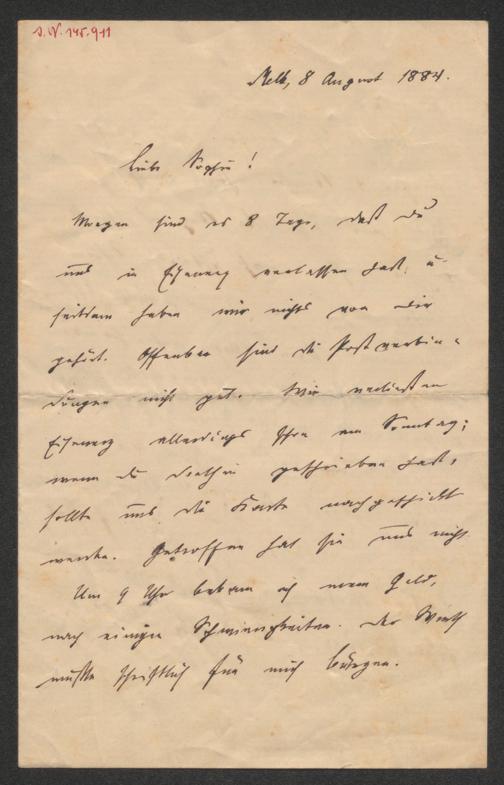 I.N. 145.911
Melk, 8 August 1884.
Liebe Sophie!
Morgen sind es 8 Tage, daß du
uns in Eisenerz verlassen hast, u.
seitdem haben wir nichts von dir
gehört. Offenbar sind die Postverbin-
dungen nicht gut. Wir verließen
Eisenerz allerdings schon am Sonntag;
wenn du dorthin geschrieben hast,
sollte uns die Karte nachgeschickt
werden. Getroffen hat sie uns nicht.
Um 9 Uhr bekam ich mein Geld,
nach einigen Schwierigkeiten. Der Wirth
mußte schriftlich für mich bürgen.